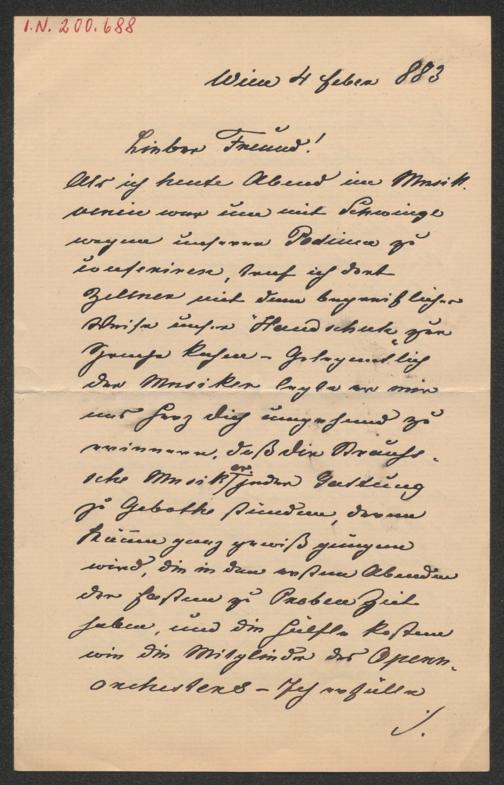 I.N. 200.688
Wien 4 Feber 883
Lieber Freund!
Als ich heute Abend im Musik
verein war um mit Schwinge
wegen unseres Podiums zu
conferiren, traf ich dort
Zellner mit dem begreiflicher
Weise unsre "Handschuhe" zur
Sprache kamen – Gelegentlich
der Musiker legte er mir
ans Herz Dich umgehend zu
erinnern, daß die Strauß-
sche Musik jeder Gattung
zu Gebothe stünden, deren
kämen ganz gewiß
wird, die in den ersten Abenden
der Fasten zu Proben Zeit
haben, und die Hälfte kosten
wie die Mitglieder des Opern-
orchesters – Ich erfülle
./.